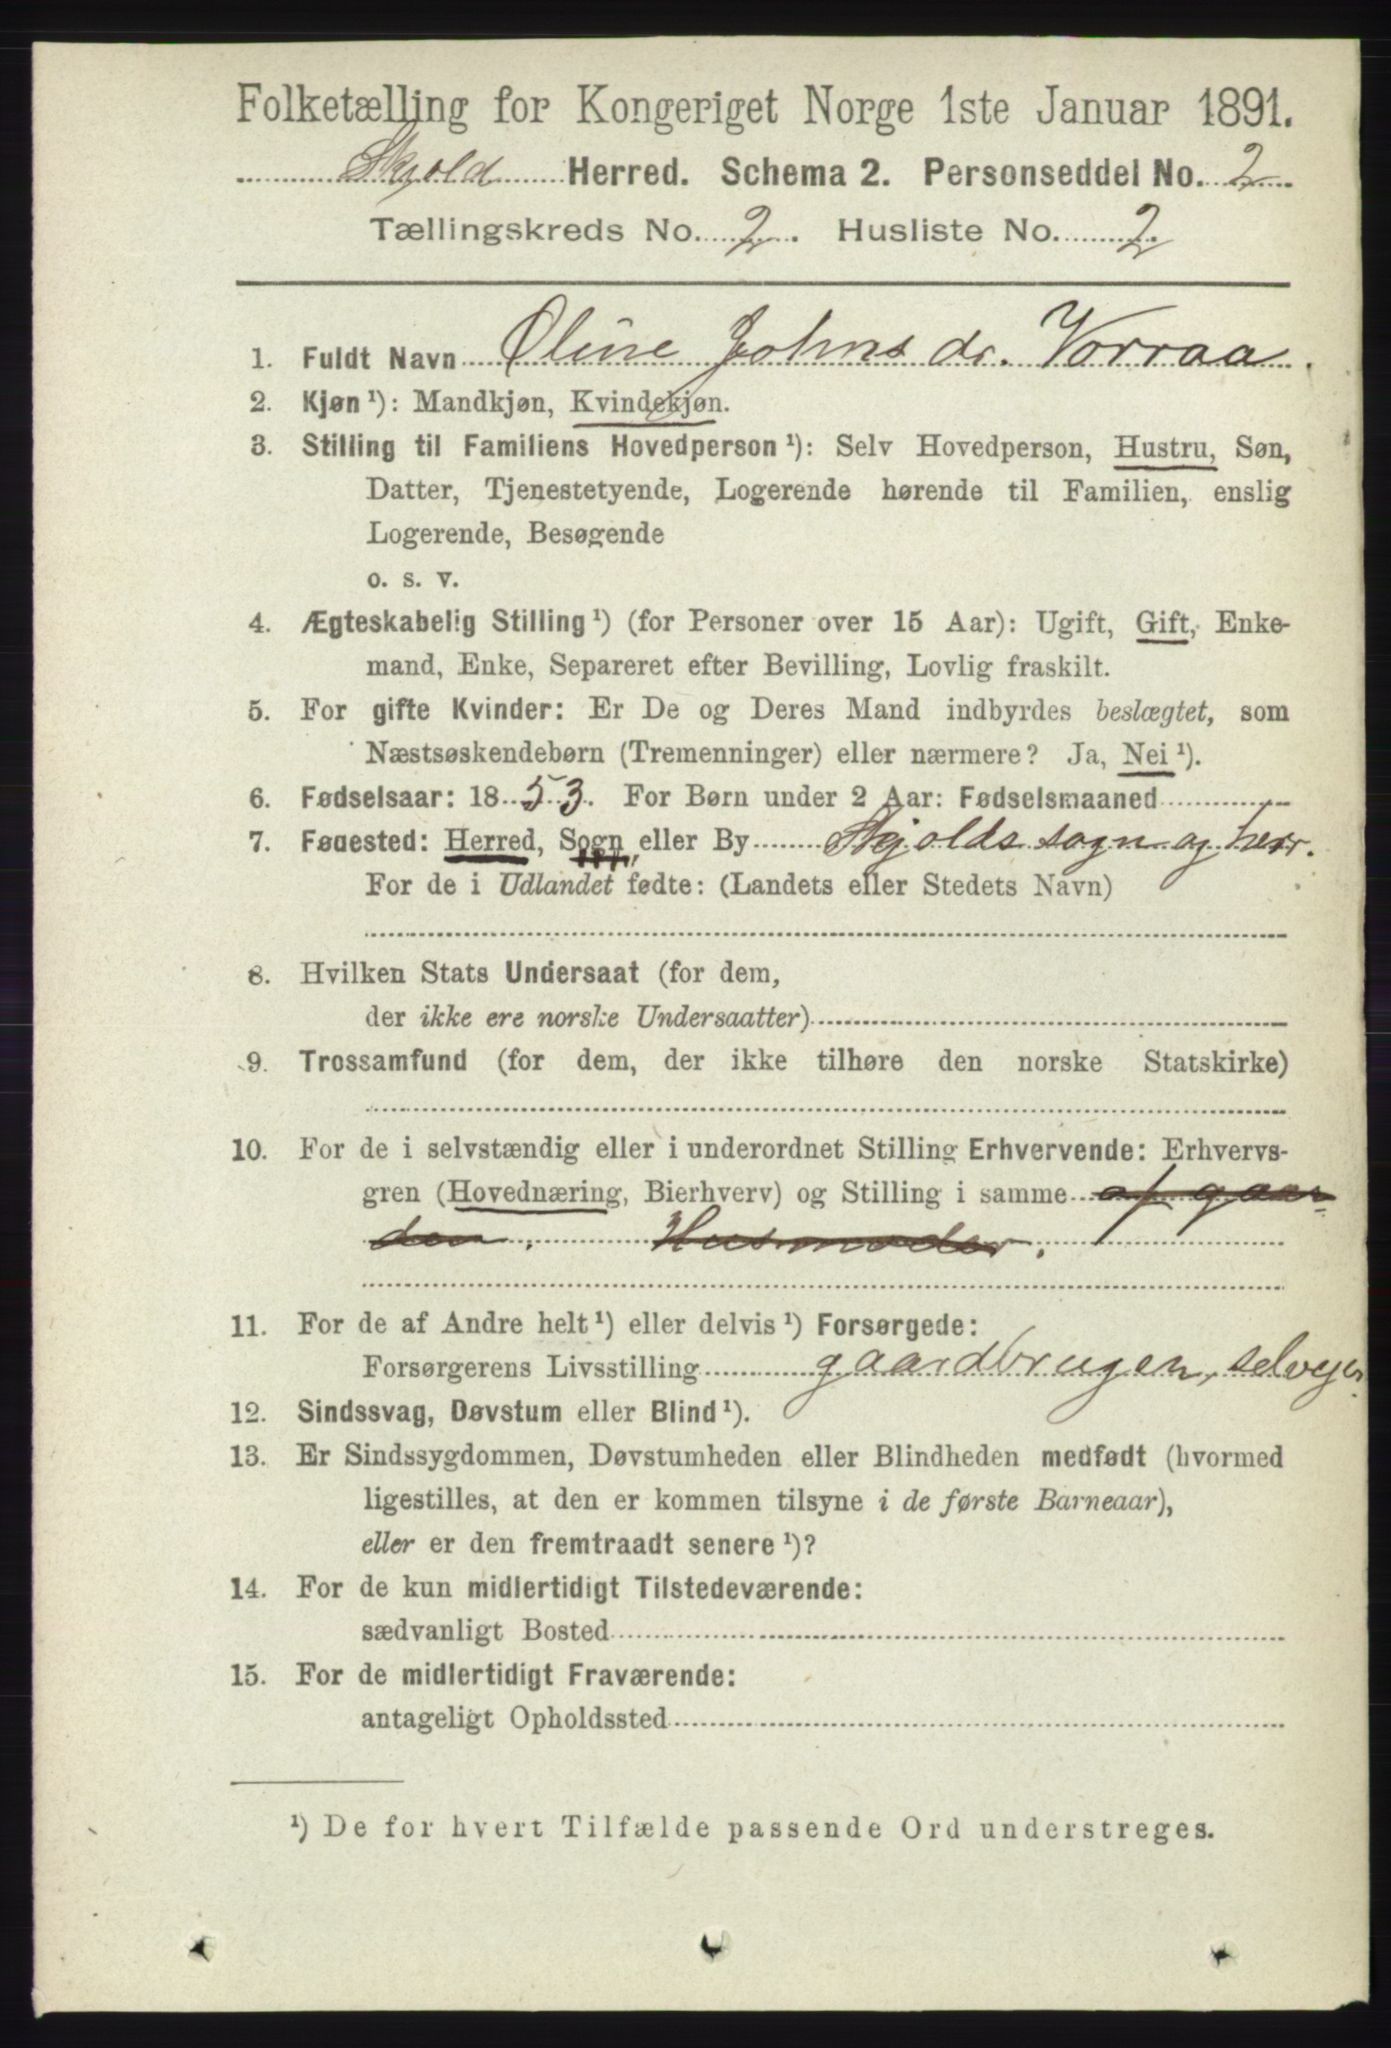 Folketælling for Kongeriget Norge 1ste Januar 1891.
Skjold Herred. Schema 2. Personseddel No. 2
Tællingskreds No. 2. Husliste No. 2.
1. Fuldt Navn Oline Johns dr. Vorraa.
2. Kjøn ¹): Mandkjøn, Kvindekjøn.
3. Stilling til Familiens Hovedperson ¹): Selv Hovedperson, Hustru, Søn,
Datter, Tjenestetyende, Logerende hørende til Familien, enslig
Logerende, Besøgende
o. s. v.
4. Ægteskabelig Stilling ¹) (for Personer over 15 Aar): Ugift, Gift, Enke-
mand, Enke, Separeret efter Bevilling, Lovlig fraskilt.
5. For gifte Kvinder: Er De og Deres Mand indbyrdes beslægtet, som
Næstsøskendebørn (Tremenninger) eller nærmere? Ja, Nei ¹).
6. Fødselsaar: 1853. For Børn under 2 Aar: Fødselsmaaned
7. Fødested: Herred, Sogn, eller By Skjolds sogn og herr.
For de i Udlandet fødte: (Landets eller Stedets Navn)
8. Hvilken Stats Undersaat (for dem,
der ikke ere norske Undersaatter)
9. Trossamfund (for dem, der ikke tilhøre den norske Statskirke)
10. For de i selvstændig eller i underordnet Stilling Erhvervende: Erhvervs-
gren (Hovednæring, Bierhverv) og Stilling i samme af gaar-
den. Husmoder.
11. For de af Andre helt ¹) eller delvis ¹) Forsørgede:
Forsørgerens Livsstilling gaardbrugen, selvejer
12. Sindssvag, Døvstum eller Blind ¹).
13. Er Sindssygdommen, Døvstumheden eller Blindheden medfødt (hvormed
ligestilles, at den er kommen tilsyne i de første Barneaar),
eller er den fremtraadt senere ¹)?
14. For de kun midlertidigt Tilstedeværende:
sædvanligt Bosted
15. For de midlertidigt Fraværende:
antageligt Opholdssted
¹) De for hvert Tilfælde passende Ord understreges.